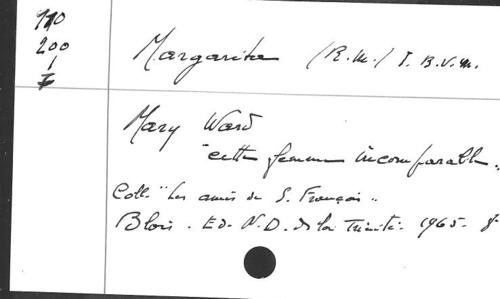 910
200
1
I
Margarita (R.M.) I. B.V.M.
Mary Ward
"cette femme incomparable"
Coll. "Les amis de S. François"
Blois. Ed. N.D. de la Trinité. 1965. 8